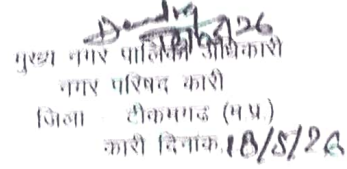 मुख्य नगर पालिका अधिकारी
नगर परिषद कारी
जिला टीकमगढ (म.प्र.)
कारी दिनांक. 18/5/26